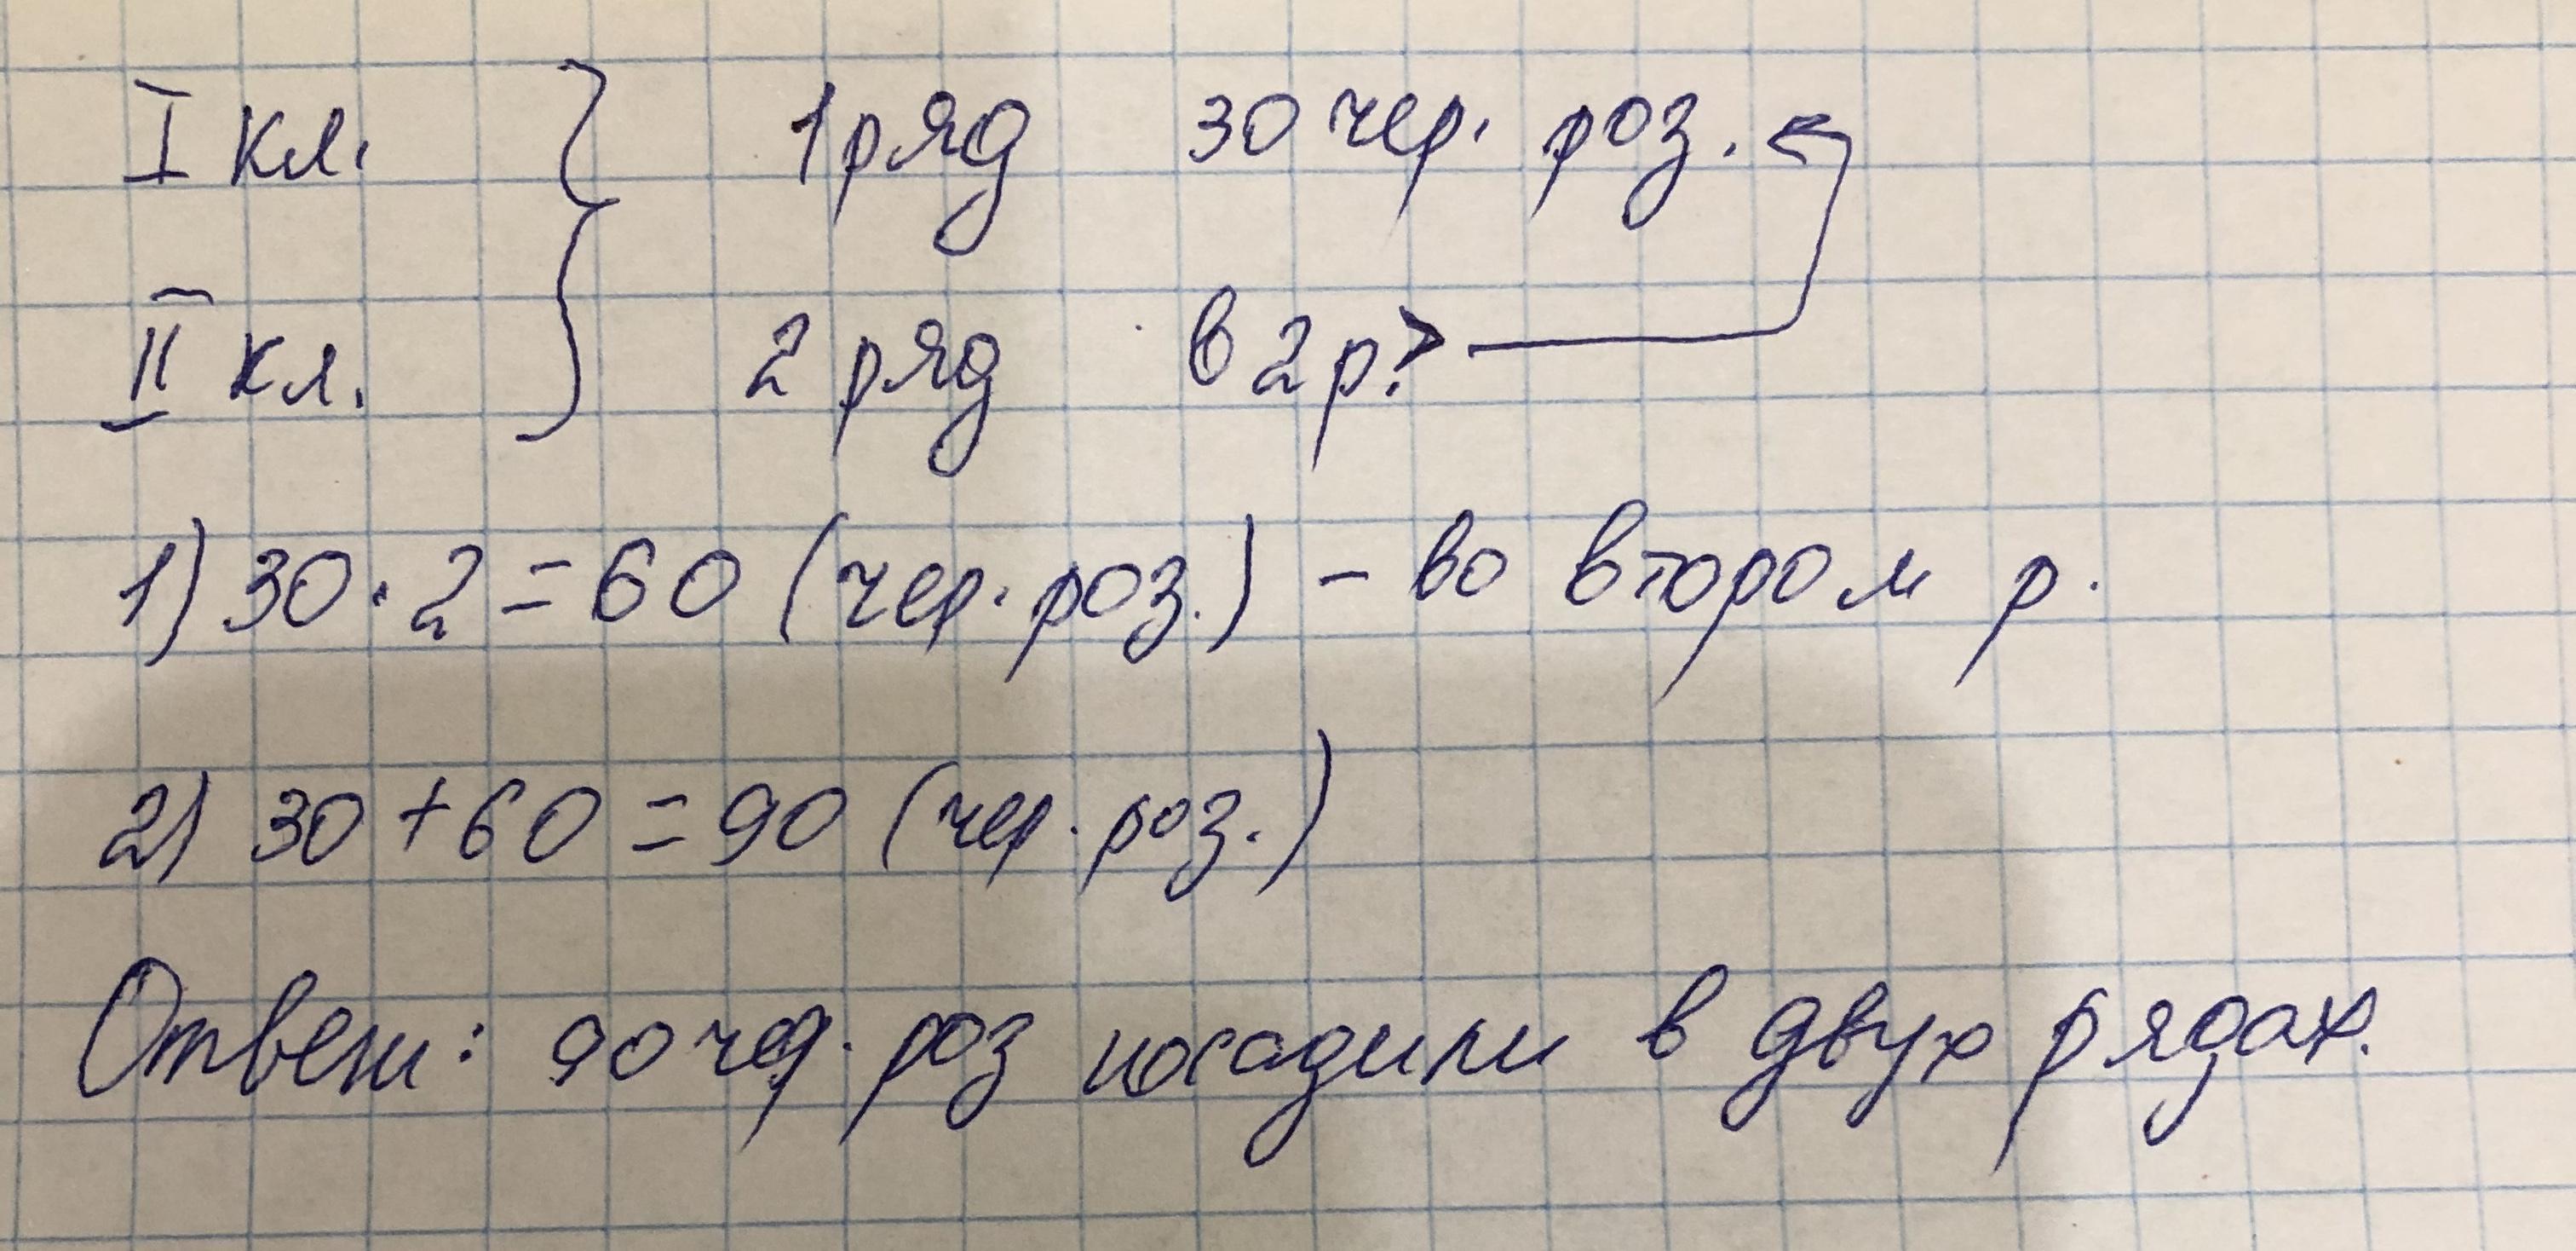 I кл. } 1 ряд 30 чер. роз.
II кл. 2 ряд в 2 р. >
1) 30 · 2 = 60 (чер. роз.) – во втором р.
2) 30 + 60 = 90 (чер. роз.)
Ответ: 90 чер. роз посадили в двух рядах.